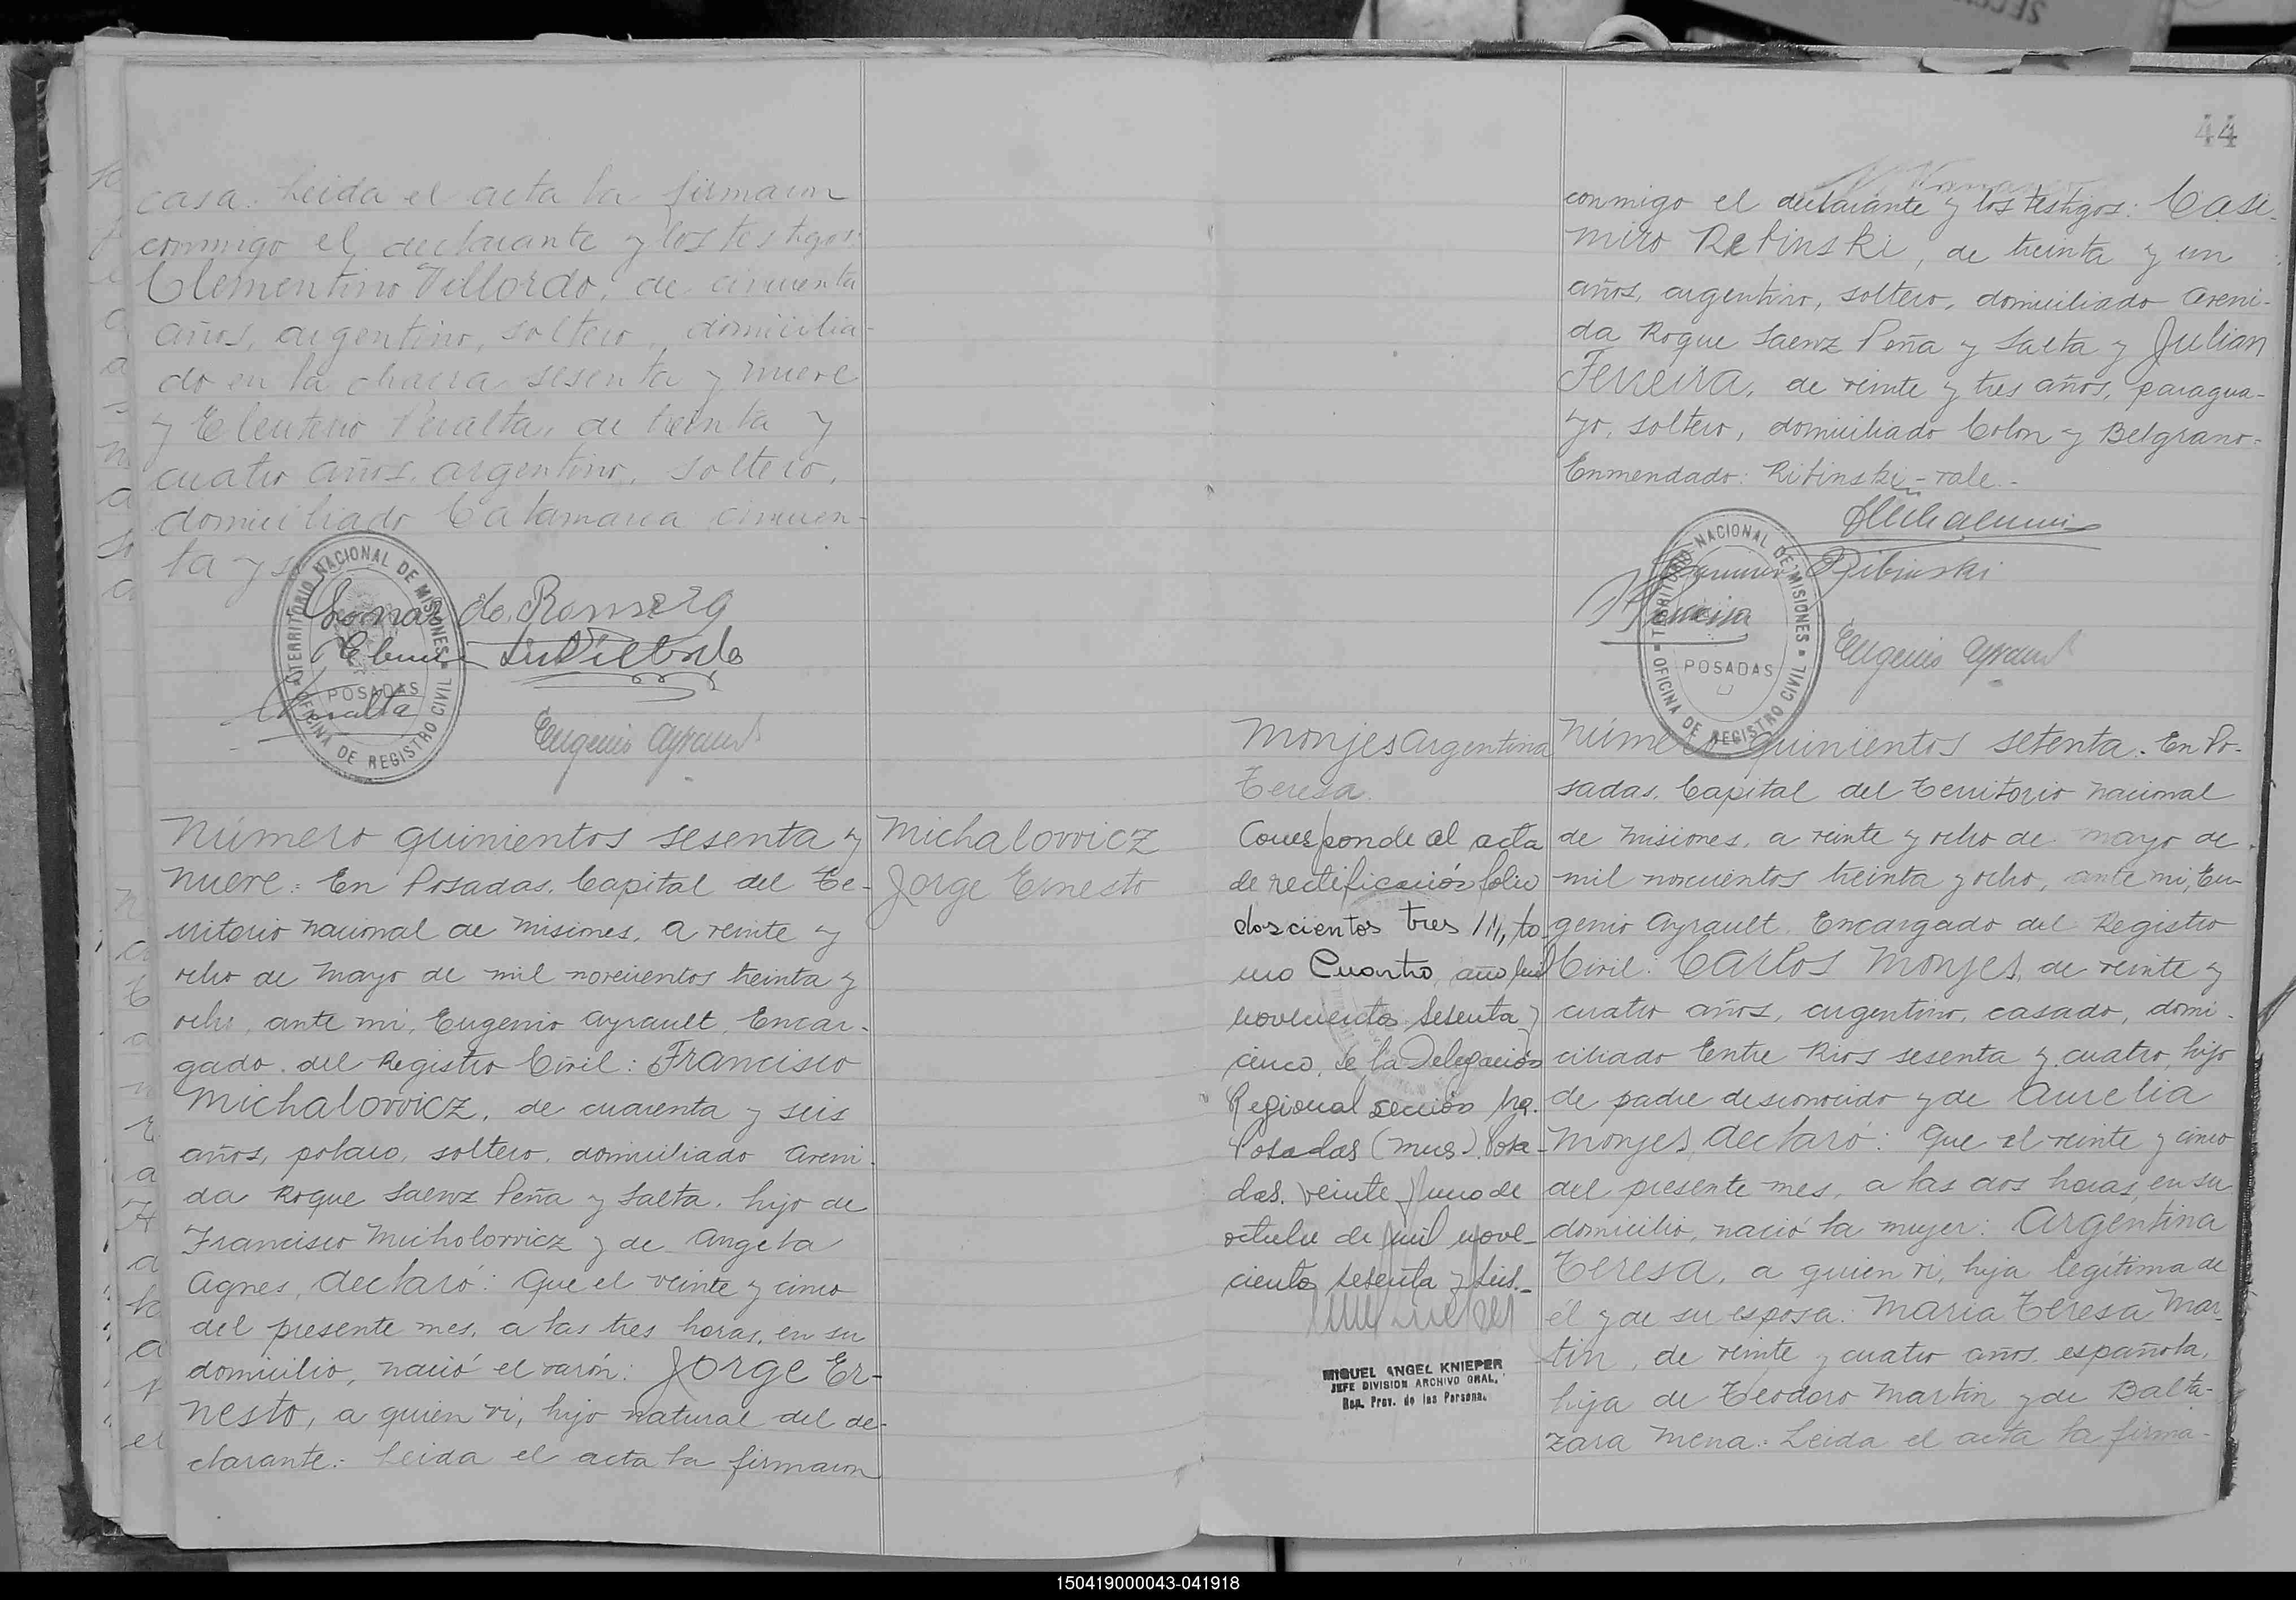 casa. Leida el acta la firmaron
conmigo el declarante y los testigos:
Clementino Villordo, de cincuenta
años, argentino, soltero, domicilia-
do en la chacra sesenta y nueve
y Eleuterio Peralta, de treinta y
cuatro años, argentino, soltero,
domiciliado Catamarca cincuen-
ta y
TERRITORIO NACIONAL DE MISIONES
OFICINA DE REGISTRO CIVIL
POSADAS
Peralta
Eugenio Ayrault
Número quinientos sesenta y
nueve: En Posadas, Capital del Te-
rritorio Nacional de Misiones, a veinte y
ocho de Mayo de mil novecientos treinta y
ocho, ante mi, Eugenio Ayrault, Encar-
gado del Registro Civil: Francisco
Michalovvicz, de cuarenta y seis
años, polaco, soltero, domiciliado Aveni-
da Roque Saenz Peña y Salta, hijo de
Francisco Micholovvicz y de Angela
Agnes, declaró: Que el veinte y cinco
del presente mes, a las tres horas, en su
domicilio, nació el varón: Jorge Er-
nesto, a quien vi, hijo natural del de-
clarante.- Leida el acta la firmaron
Michalovvicz
Jorge Ernesto
44
conmigo el declarante y los testigos: Casi-
miro Rebinski, de treinta y un
años, argentino, soltero, domiciliado Aveni-
da Roque Saenz Peña y Salta y Julian
Ferreira, de veinte y tres años, paragua-
yo, soltero, domiciliado Colon y Belgrano.-
Enmendado: Ribinski - vale.-
Ribinski
TERRITORIO NACIONAL DE MISIONES
OFICINA DE REGISTRO CIVIL
POSADAS
Eugenio Ayrault
Monjes Argentina
Teresa
Corresponde al acta
de rectificación folio
doscientos tres, to-
mo Cuarto, año mil
novecientos sesenta y
cinco, de la Delegación
Regional sección 1ra.
Posadas (Mnes). Posa-
das, veinte y uno de
octubre de mil nove-
cientos sesenta y seis.-
MIGUEL ANGEL KNIEPER
JEFE DIVISION ARCHIVO GRAL.
Reg. Prov. de las Persona.
Número quinientos setenta. En Po-
sadas, Capital del Territorio Nacional
de Misiones, a veinte y ocho de Mayo de
mil novecientos treinta y ocho, ante mi, Eu-
genio Ayrault, Encargado del Registro
Civil: Carlos Monjes, de veinte y
cuatro años, argentino, casado, domi-
ciliado Entre Rios sesenta y cuatro, hijo
de padre desconocido y de Aurelia
Monjes, declaró: Que el veinte y cinco
del presente mes, a las dos horas, en su
domicilio, nació la mujer: Argentina
Teresa, a quien vi, hija legítima de
él y de su esposa: Maria Teresa Mar-
tin, de veinte y cuatro años, española,
hija de Teodoro Martin y de Balta-
zara Mena.- Leida el acta la firma-
150419000043-041918